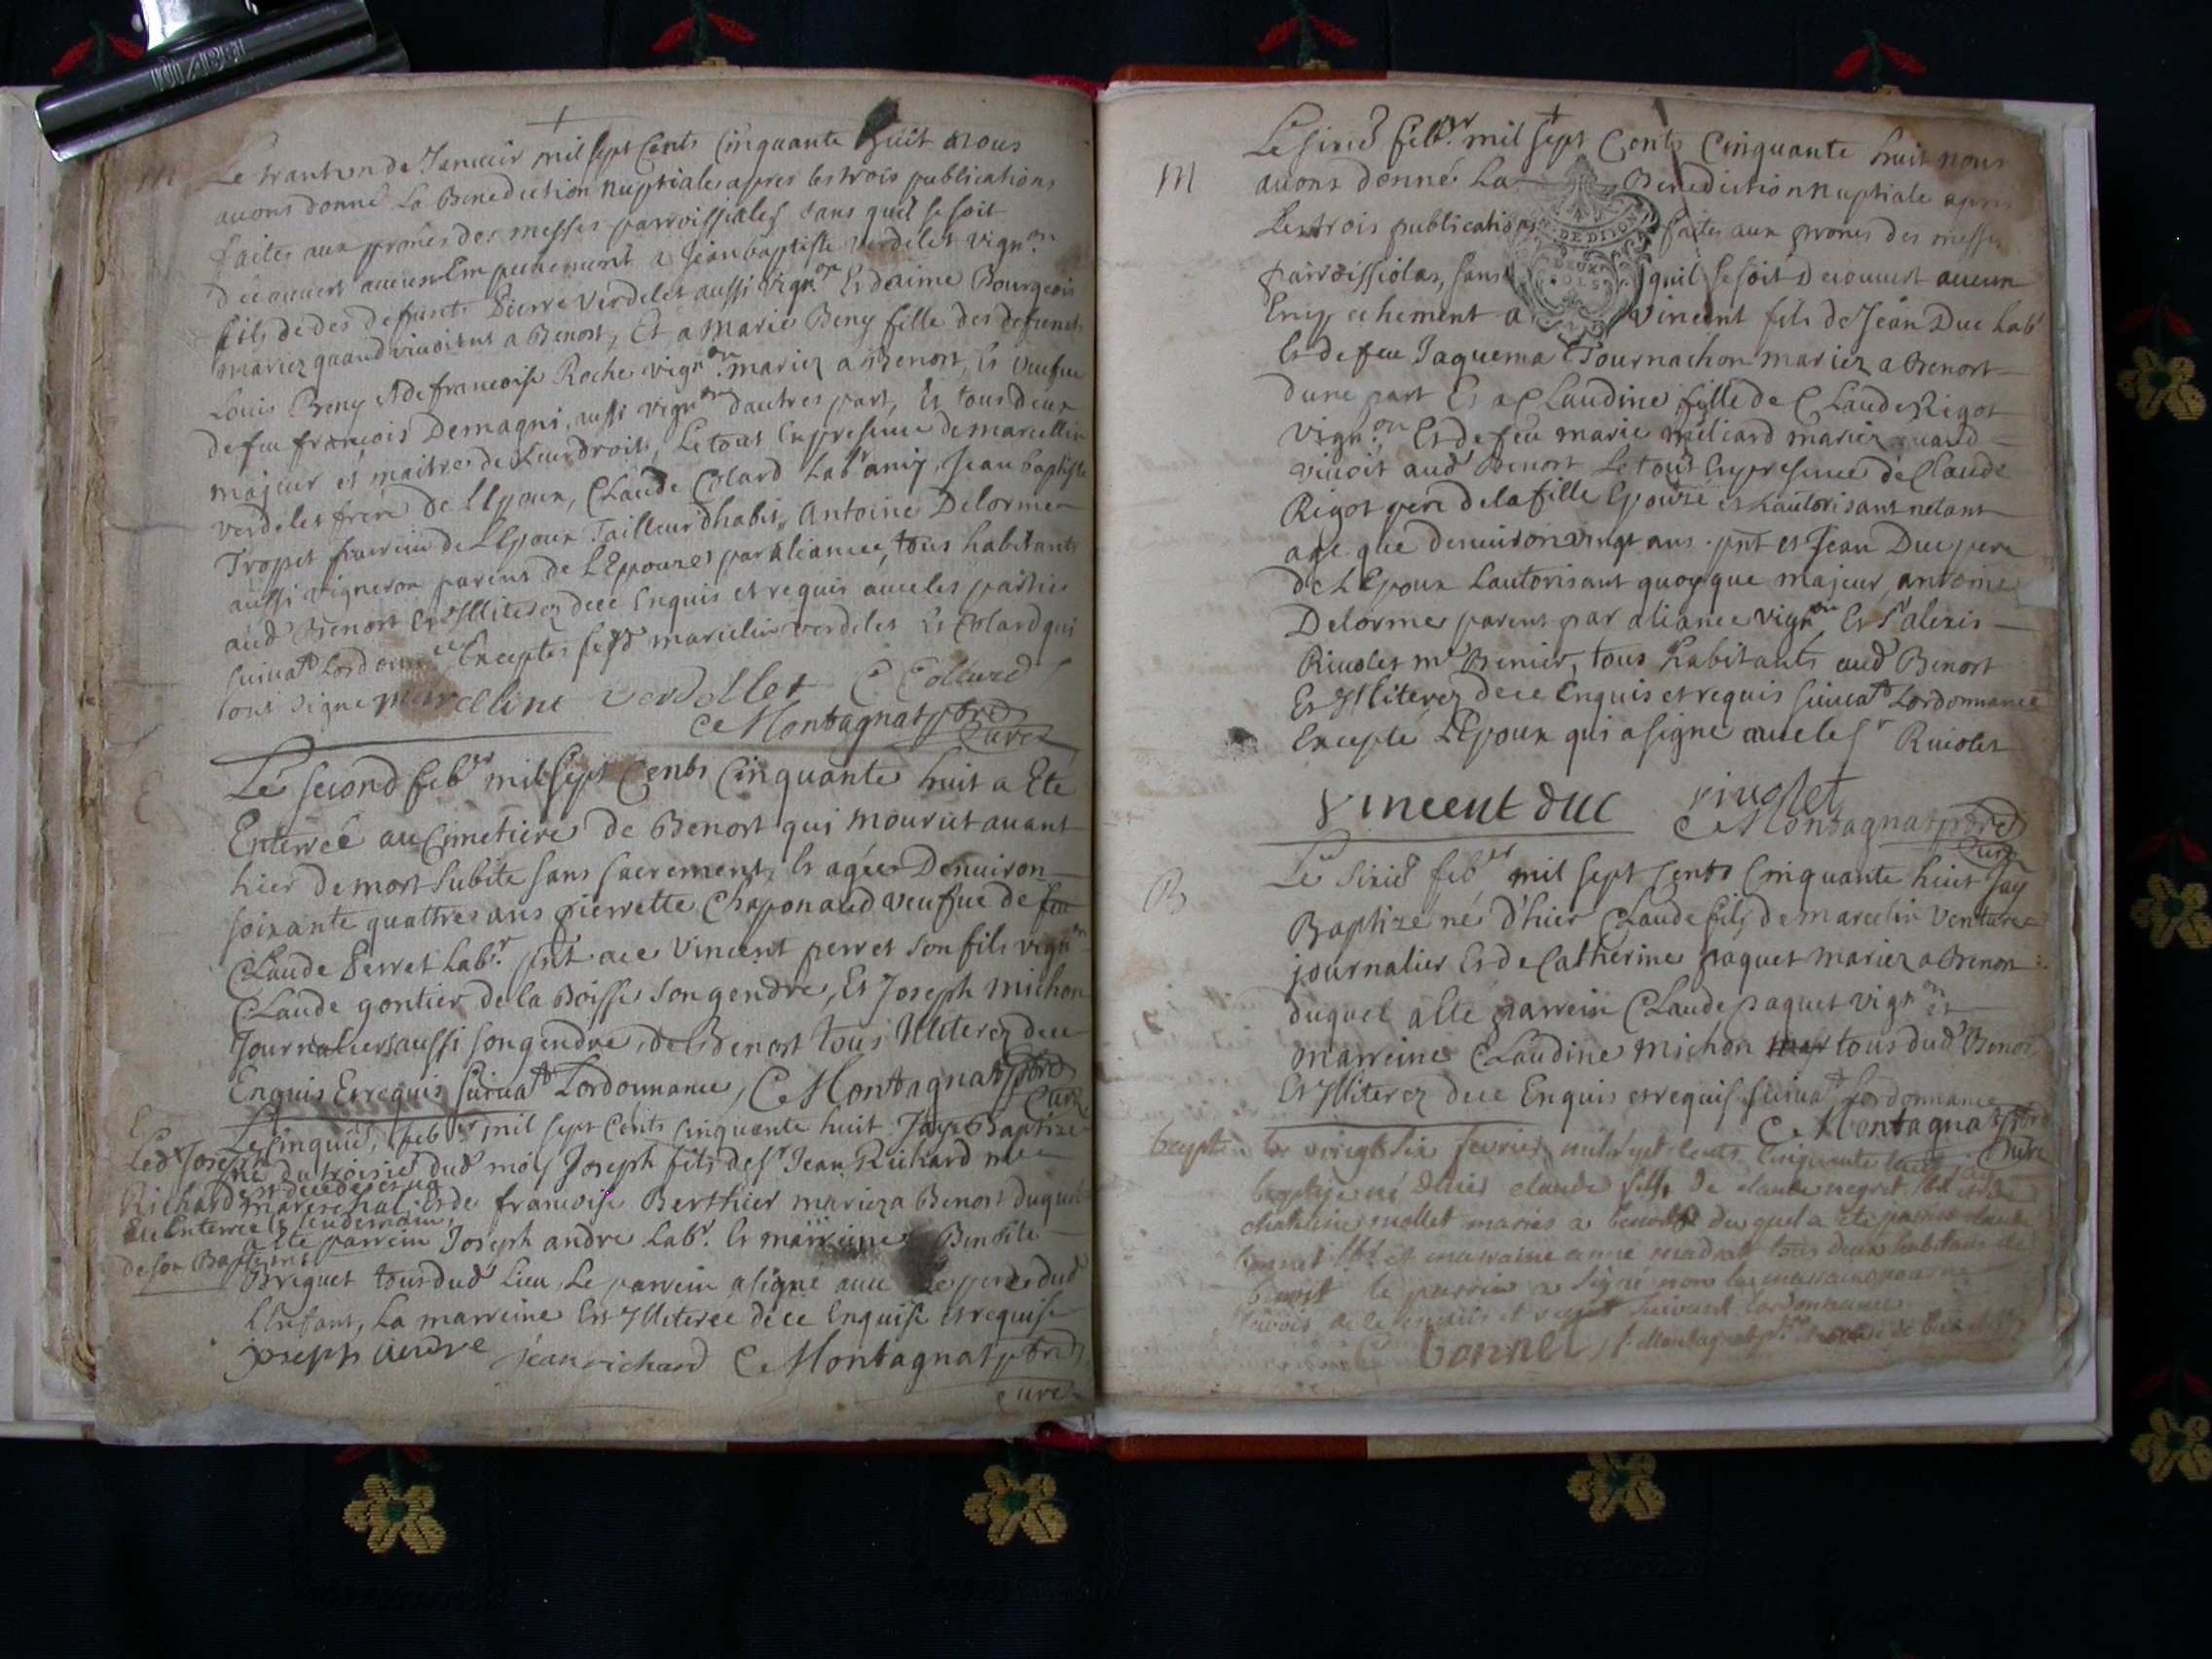 M
Le trant un de Jenuier mil sept Cents Cinquante huit nous
auons donné La Benediction nuptiales apres les trois publications
faites aux prônes des messes parroissiales sans quil se soit
decouuert aucun Empechement a Jean baptiste verdelet vign.on
fils de des defunts Pierre Verdelet aussi vign.on Et daime Bourgeois
mariez quand viuoient a Benost, Et a Marie Beny fille des defunts
Louis Beny et de francoise Roche vign.on mariez a Benost, Et veufue
de feu francois Demagni, aussi vign.on dautres part, Et tous deux
majeur et maitres de Leur droits, Le tout En presence de marcellin
verdelet frere de LEpoux, CLaude Colard Lab.r amis, Jean baptiste
Tropet parrein de LEpoux Tailleur dhabit, Antoine Delorme
aussi vigneron parent de LEpouze par aliance, tous habitants
aud Benost Et Illiterez dece Enquis et requis auec les parties
suiuat Lordonnce Exceptes led marcelin verdelet Et Colard qui
ont signe marcelline verdellet C Collard
C Montagnat ptre
Curé
E
Le second feb.er mil sept Cents Cinquante huit a Ete
Enterreé au Cimetiere de Benost qui mourut auant
hier de mort subite sans sacrement, Et agée Denuiron
soixante quattre ans pierrette Chaponaud veufue de feu
CLaude Perret Lab.r pnt ace Vincent perret son fils vign.on
CLaude gontier de la Boisse son gendre, Et Joseph michon
Journaliers aussi son gendre, de Benost tous Illiterez dece
Enquis Et requis suiuat Lordonnance, C Montagnat ptre
Curé
E
Le Cinquie feb.er mil sept Cents Cinquante huit Jay Baptize
né du troisie dud mois Joseph fils de Sr Jean Richard me
mareschal Et de francoise Berthier mariez a Benost duquel
a Ete parrein Joseph andre Lab.r Et marreine Benoite
Briguet tous dud Lieu, Le parrein a signé auec Le pere dud
LEnfant, La marreine Est Illiteree dece Enquise et requise
joseph andre jean richard C Montagnat ptre
Curé
Led Joseph
Richard est decede et a
Ete Enterré le lendemain
de son Bapteme
M
Le sixie feb.er mil sept Cents Cinquante huit nous
auons donné La Benediction nuptiale apres
Les trois publications faites aux prones des messes
parroissiolas, sans quil se soit Decouuert aucun
Empechement a Vincent fils de Jean Duc Lab.r
Et de feu Jaquema Tournachon mariez a Benost
dune part Et a CLaudine fille de CLaude Rigot
vign.on Et de feu marie miliard mariez quand
viuoit aud Benost Le tout En presence de CLaude
Rigot pere de la fille Epouze et Lautorisant netant
age que denuiron vingt ans pnt et Jean Duc pere
de LEpoux Lautorisant quoyque majeur, antoine
Delorme parent par aliance vign.on Et Sr alexis
Riuolet me Benier, tous habitants aud Benost
Et Illiterez dece Enquis et requis suiuat Lordonnance
Excepté LEpoux qui a signe auec le Sr Riuolet
DE DIJON
DEUX
SOLS
vincent duc riuolet
C Montagnat ptre
Curé
B
Le sixie feb.er mil sept Cents Cinquante huit Jay
Baptize né d'hier CLaude fils de marcelin Venture
journalier Et de Catherine paquet mariez a Benost
duquel a Eté parrein CLaude paquet vign.on et
marreine CLaudine michon tous dud Benost
Et Illiterez dece Enquis et requis suiuat Lordonnance
C Montagnat ptre
Curé
bapte
Le vingt six feurier mil sept cents cinquante huit jai
baptisé né dhier claude fils de claude negret et de
mollet mariés a benost du quel a eté parrin claude
bonnet et marraine anne tous deux habitans de
benost le parrin a signé non la marraine pour ne
scavoir de ce enquis et requis suivant lordonnance
C bonnet C Montagnat ptre curé de benost